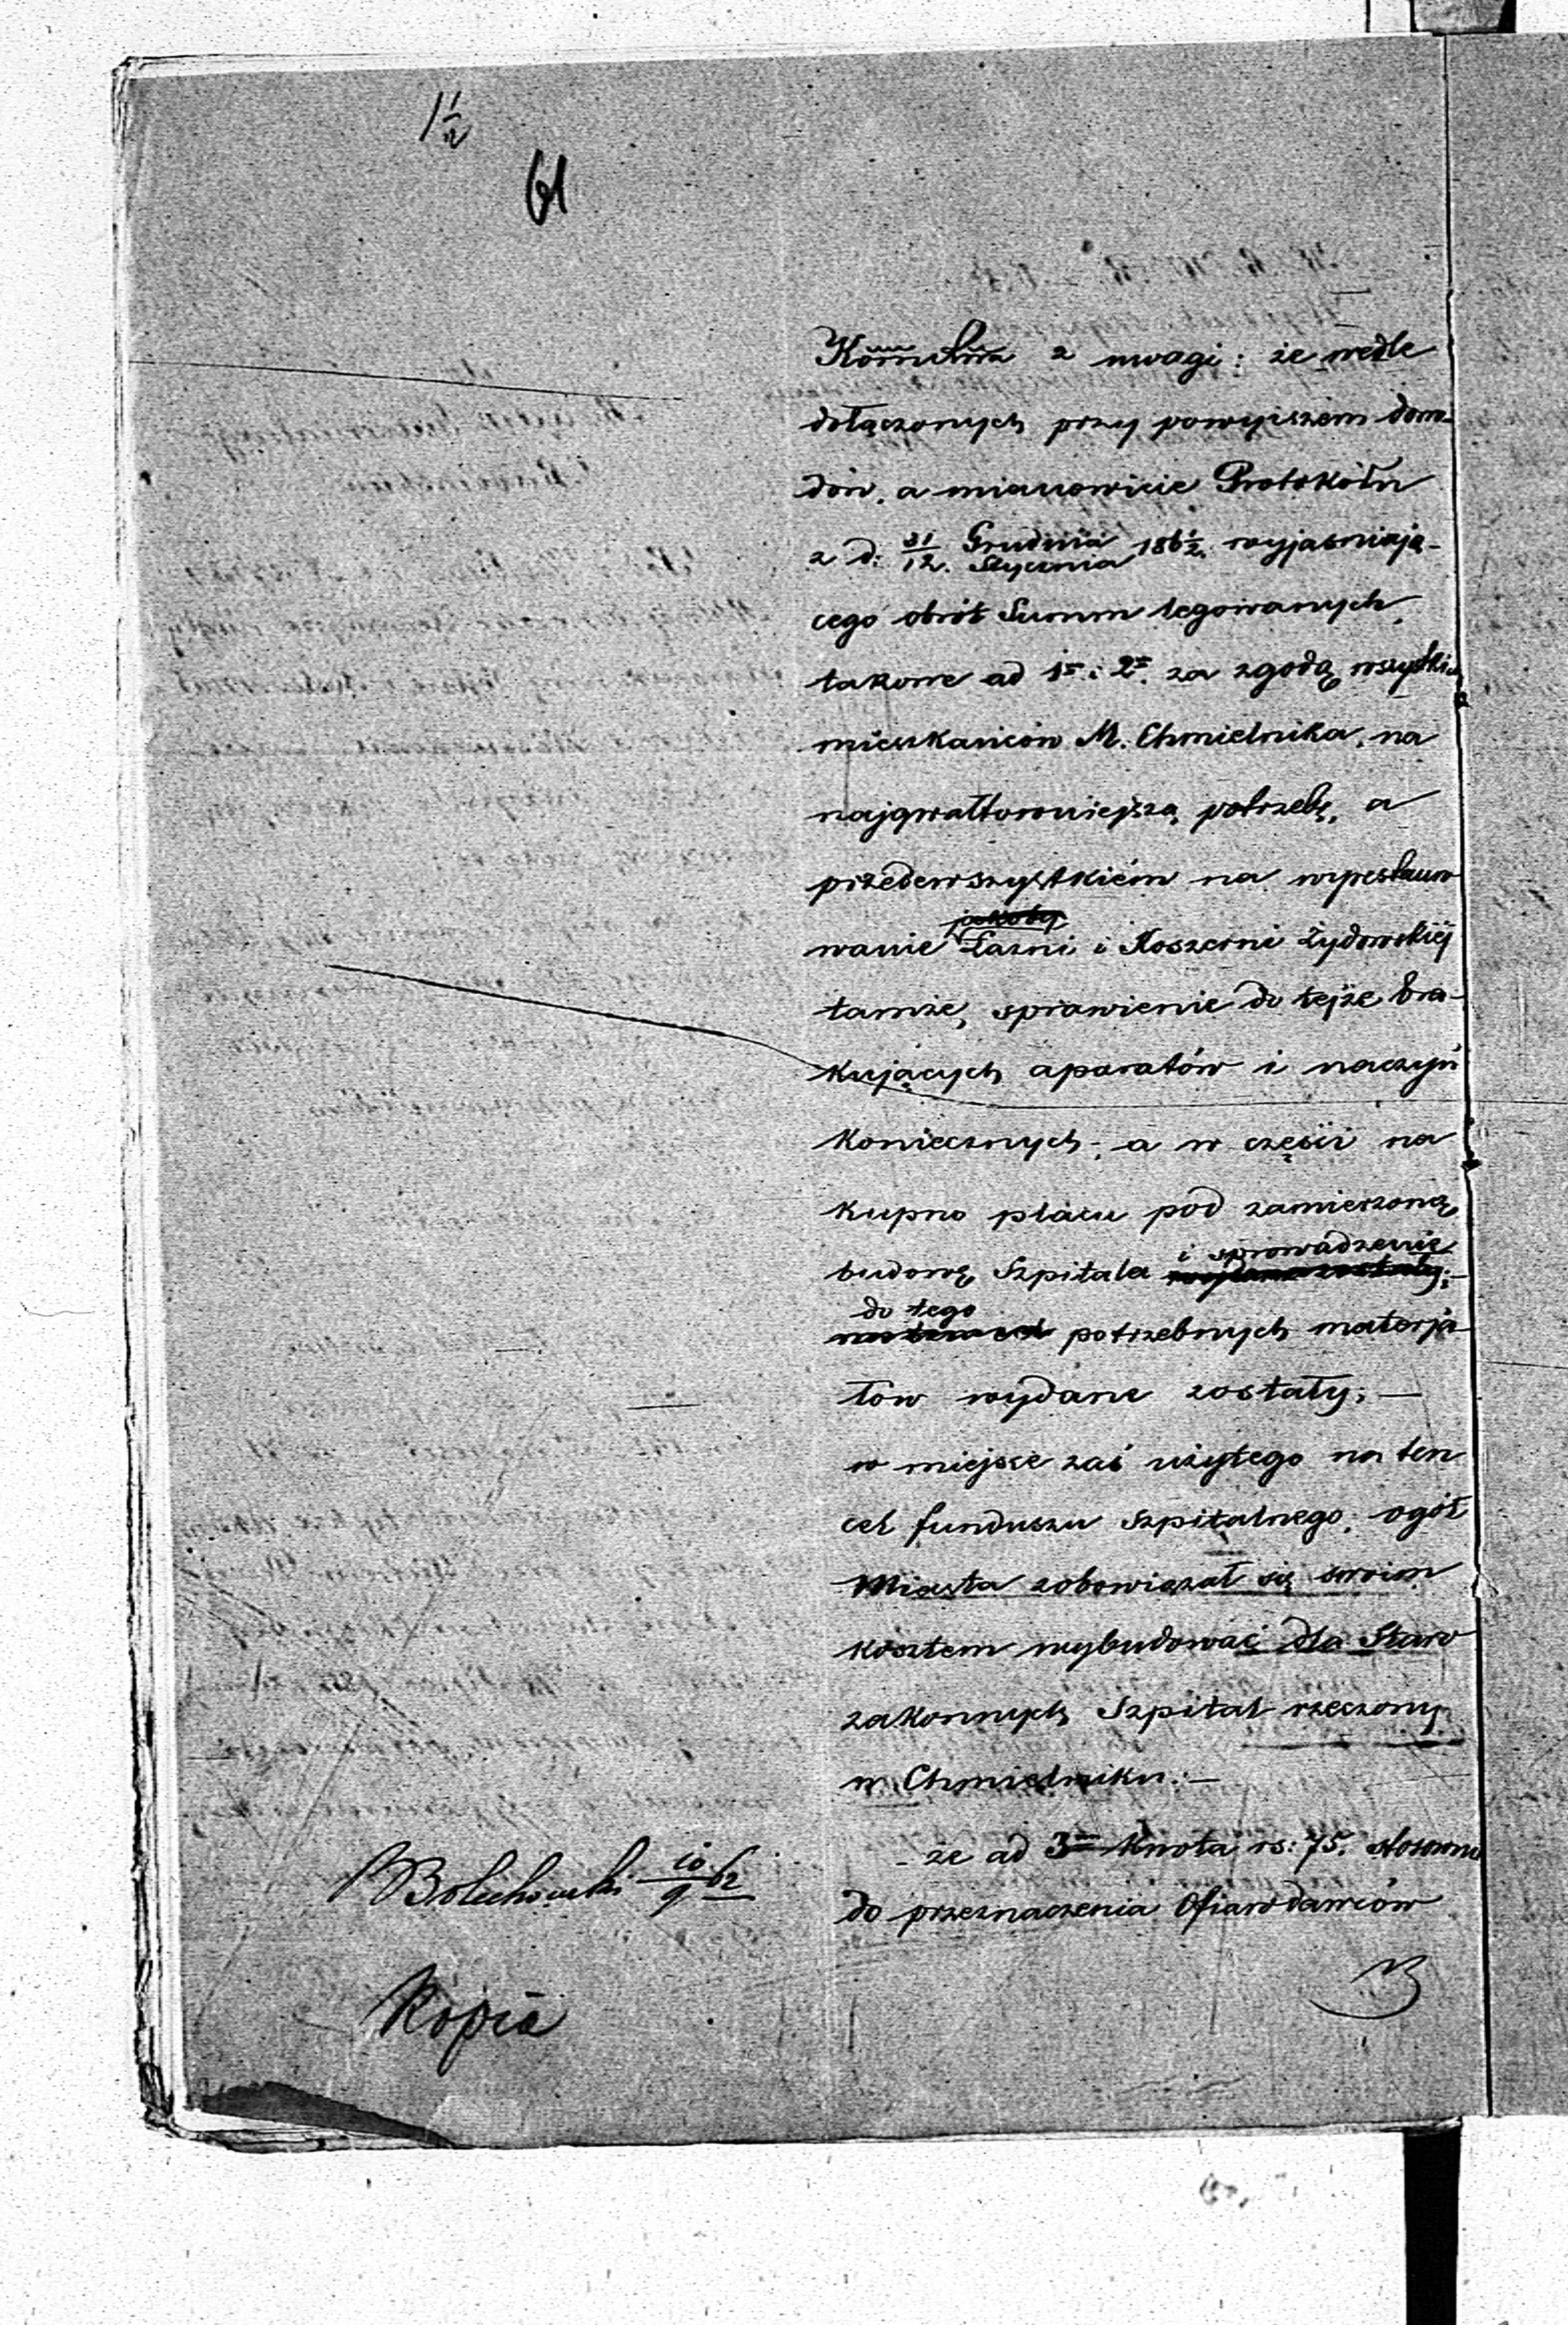 1 1/2
61
z uwagi: że wedle
dołączonych przy powyższem dowo-
dów, a mianowicie Protokółu
z d: 31/12. Grudnia/Stycznia 186 1/2. wyjasniają-
cego obrót Summ legowanych,
takowe ad 1o i 2o za zgodą wszystkich
mieszkańców M. Chmielnika, na
najgwałtowniejszą potrzebę, a
przedewszystkiém na
wanie Łazni i Koszerni Żydowskiéj
tamże, sprawienie do tejże bra-
kujących aparatów i naczyń
koniecznych; a w części na
kupno placu pod zamierzoną
budowę Szpitala i sprowadzenie
do tego potrzebnych materja
łów wydane zostały; —
w miejsce zaś użytego na ten
cel funduszu szpitalnego, ogół
Miasta zobowiązał się swoim
kosztem wybudować dla Staro
zakonnych Szpital rzeczony
w Chmielniku. —
- że ad 3m kwota rs: 75. stosownie
do przeznaczenia Ofiarodawców
10/9 62
Kopia